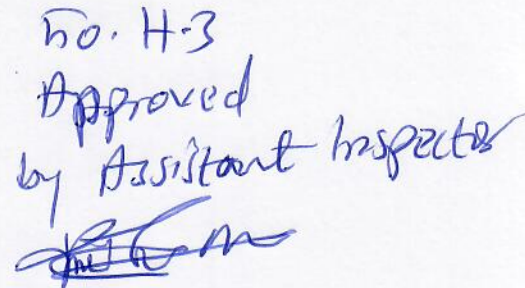 No. H-3
Approved
by Assistant Inspector